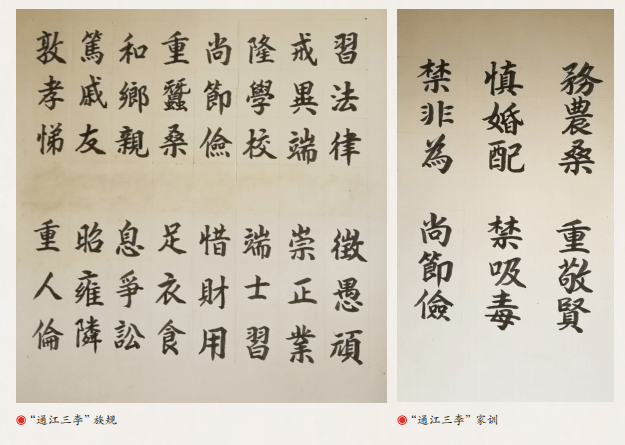 習法律 徵愚頑
戒異端 崇正業
隆學校 端士習
尚節儉 惜財用
重蠶桑 足衣食
和鄉親 息爭訟
篤戚友 昭雍隣
敦孝悌 重人倫
“通江三李”族规
務農桑 重敬賢
慎婚配 禁吸毒
禁非為 尚節儉
“通江三李”家训